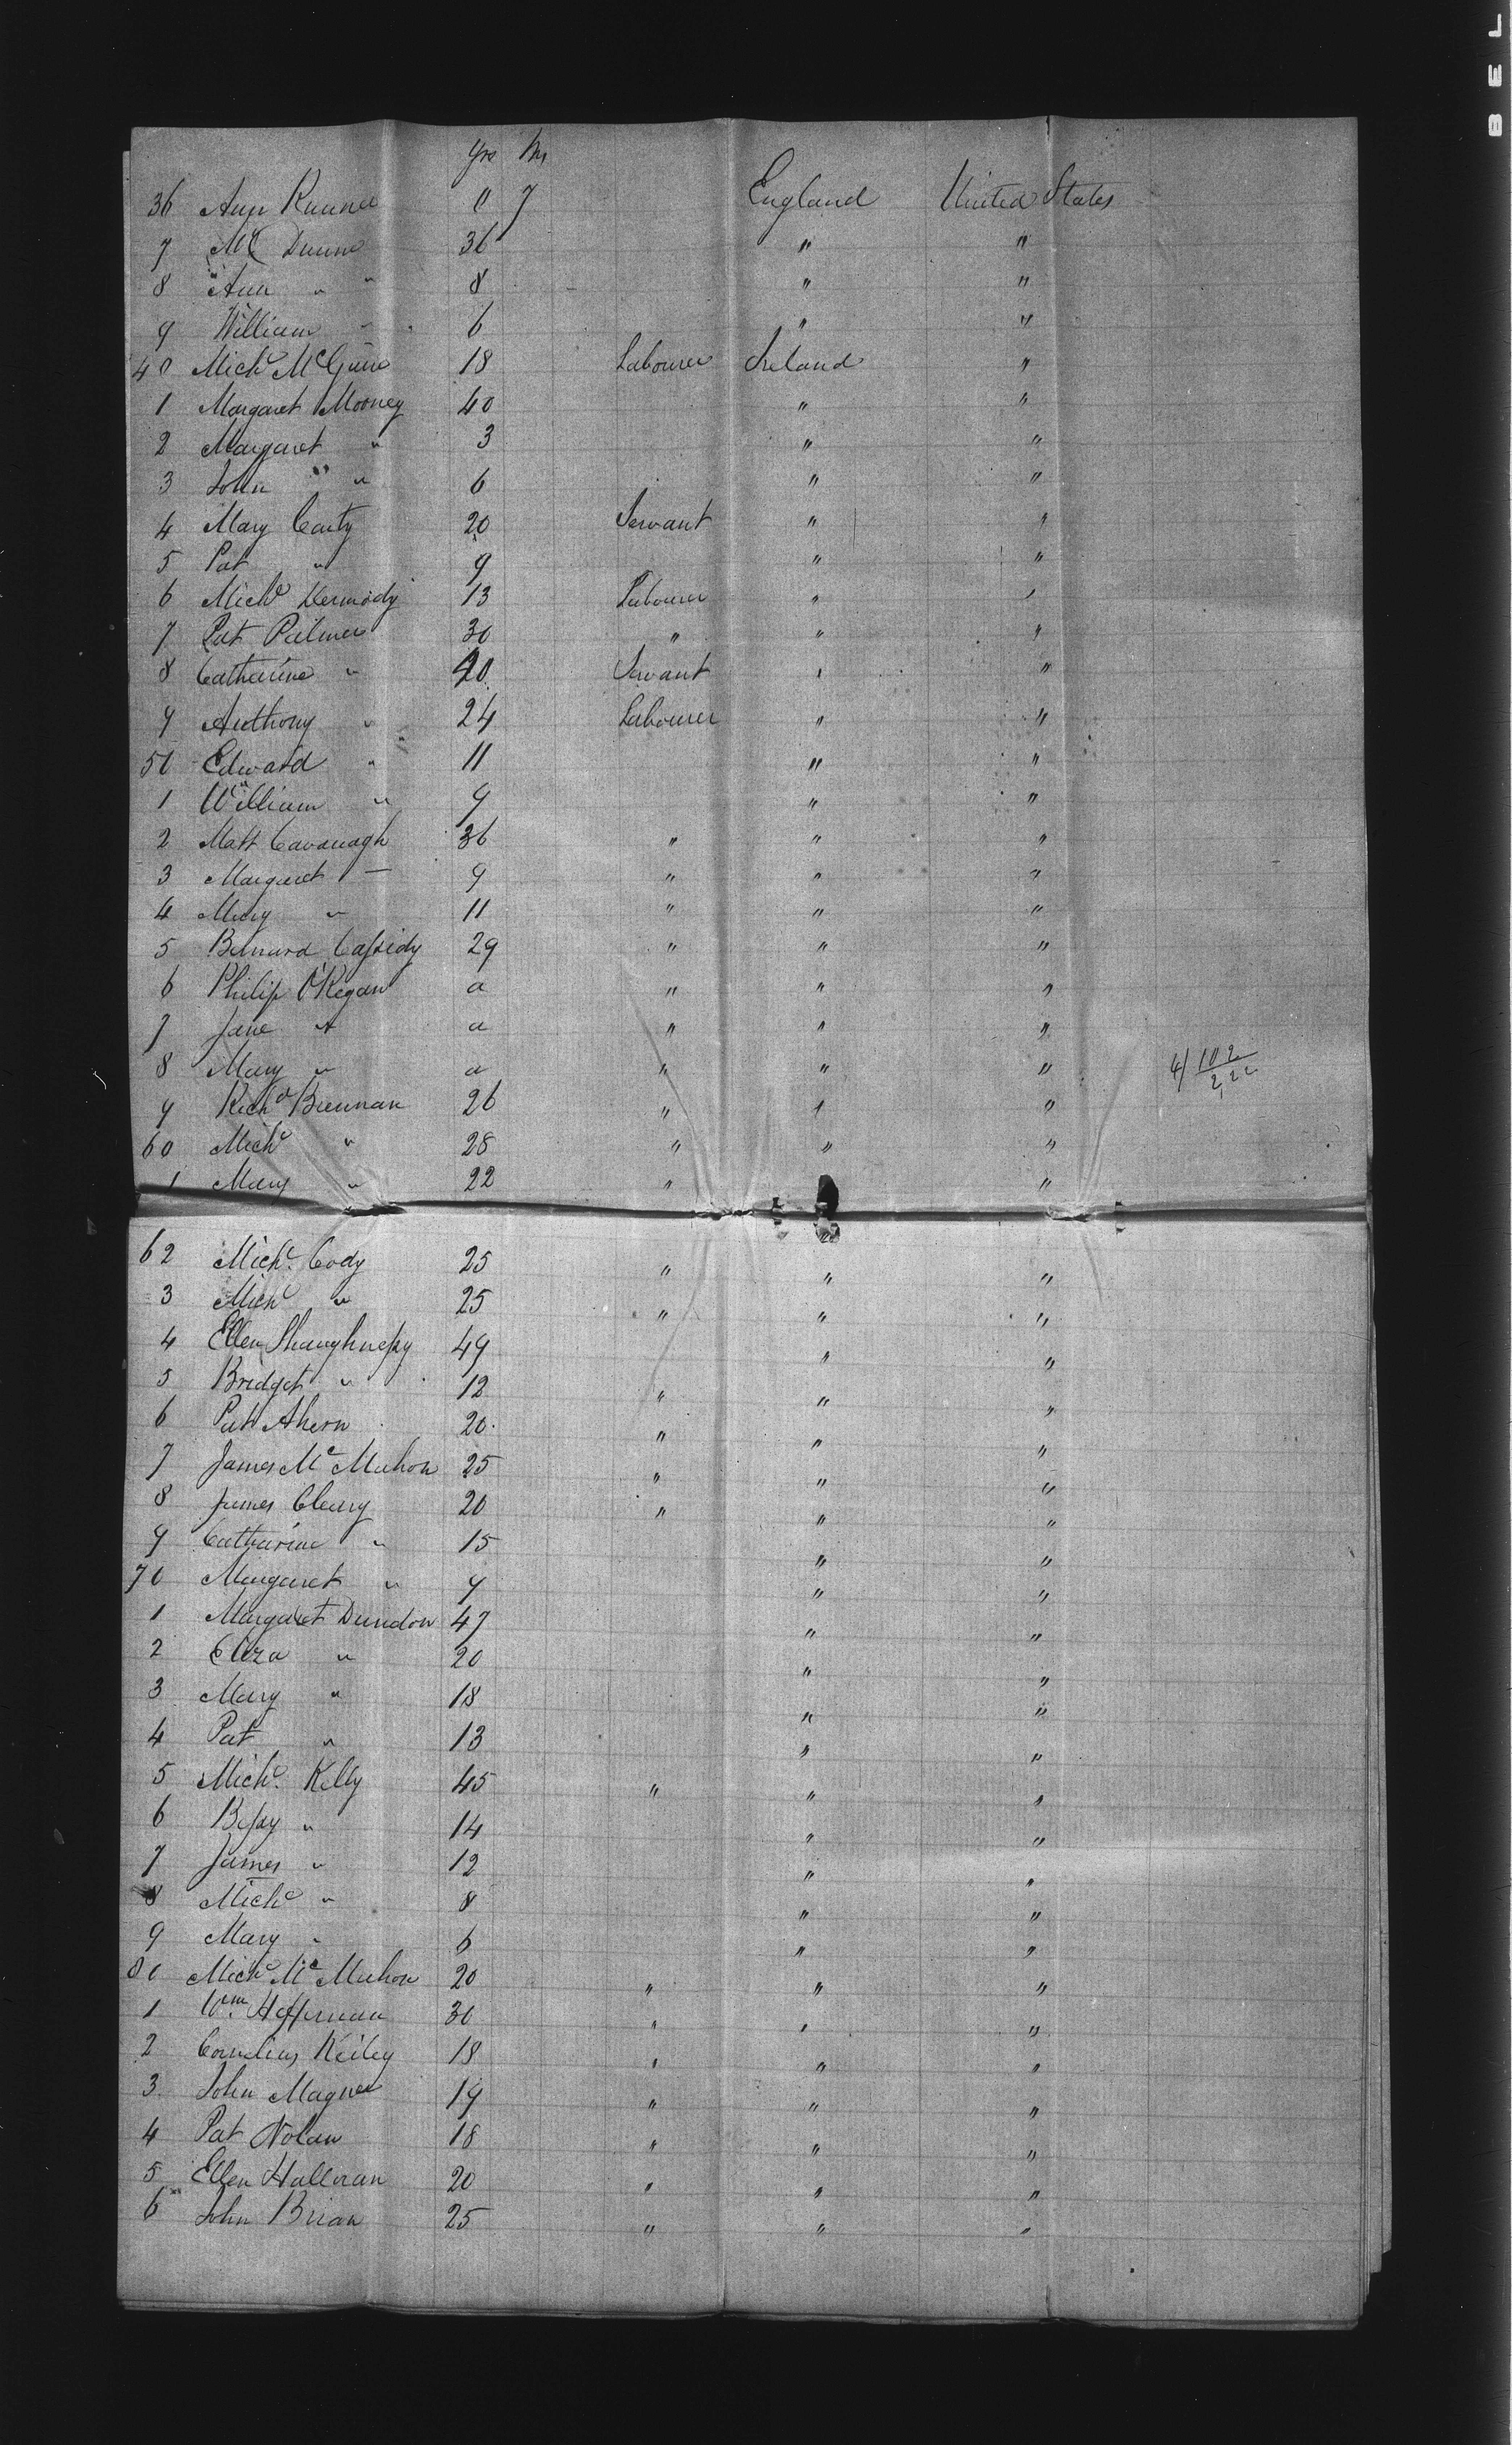 yrs Ms
36 Ann 0 7 England United States
7 Mc Dunn 36 " "
8 " Ann " " 8 " "
9 William " 6 " "
40 Michl McGuire 18 Labourer Ireland "
1 Margaret Mooney 40 " "
2 Margaret " 3 " "
3 John " " 6 " "
4 Mary Carty 20 Servant " "
5 Pat " 9 " "
6 Michl Kermody 13 Labourer " "
7 Pat Palmer 30 " " "
8 Catherine " 20 Servant " "
9 Anthony " 24 Labourer " "
50 Edward " 11 " "
1 William " 9 " "
2 Matt Cavanagh 36 " " "
3 Margaret — 9 " " "
4 Mary " 11 " " "
5 Bernard Cassidy 29 " " "
6 Philip O'Regan a " " "
7 Jane " a " " "
8 Mary " a " " " 4/ 102
9 Richd Brennan 26 " " "
60 Michl " 28 " " "
1 Mary " 22 " "
62 Michl. Cody 25 " " "
3 Michl " 25 " " "
4 Ellen Shaughnessy 49 " "
5 Bridget " 12 " " "
6 Patk Ahern 20 " " "
7 James McMahon 25 " " "
8 James Cleary 20 " " "
9 Catharine " 15 " "
70 Margaret " 9 " "
1 Margaret Dundon 47 " "
2 Eliza " 20 " "
3 Mary " 18 " "
4 Pat " 13 " "
5 Michl. Kelly 45 " " "
6 Bessy " 14 " "
7 James " 12 " "
8 Michl " 8 " "
9 Mary " 6 " "
80 Michl McMahon 20 " " "
1 Wm. Heffernan 30 " " "
2 Cornelius Reiley 18 " " "
3 John Magner 19 " " "
4 Pat Nolan 18 " " "
5 Ellen Halloran 20 " " "
6 John Brian 25 " " "
BEL